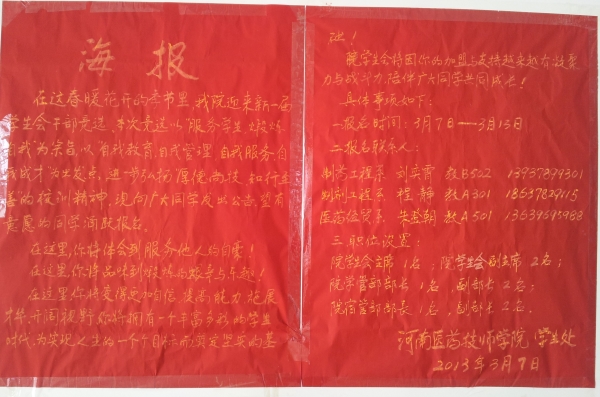 海报
在这春暖花开的季节里,我院迎来新一届
学生会干部竞选,本次竞选以"服务学生,锻炼
自我"为宗旨,以"自我教育,自我管理,自我服务,自
我成才"为出发点,进一步弘扬"厚德尚技,知行并
善"的校训精神,现向广大同学发出公告,望有
意愿的同学踊跃报名。
在这里,你将体会到服务他人的自豪!
在这里,你将品味到锻炼的艰辛与乐趣!
在这里,你将变得更加自信,提高能力,施展
才华,开阔视野,你将拥有一个丰富多彩的学生
时代,为实现人生的一个个目标而奠定坚实的基
础!
院学生会将因你的加盟与支持越来越有凝聚
力与战斗力,陪伴广大同学共同成长!
具体事项如下:
一.报名时间:3月7日——3月13日
二.报名联系人:
制药工程系 刘 教B502 13937899301
制剂工程系 程静 教A301
医药经贸系 朱 朝 教A501
三.职位设置:
院学生会主席1名,院学生会副主席2名;
院学管部部长1名,副部长2名;
院宿管部部长1名,副部长2名。
河南医药技师学院 学生处
2013年3月7日